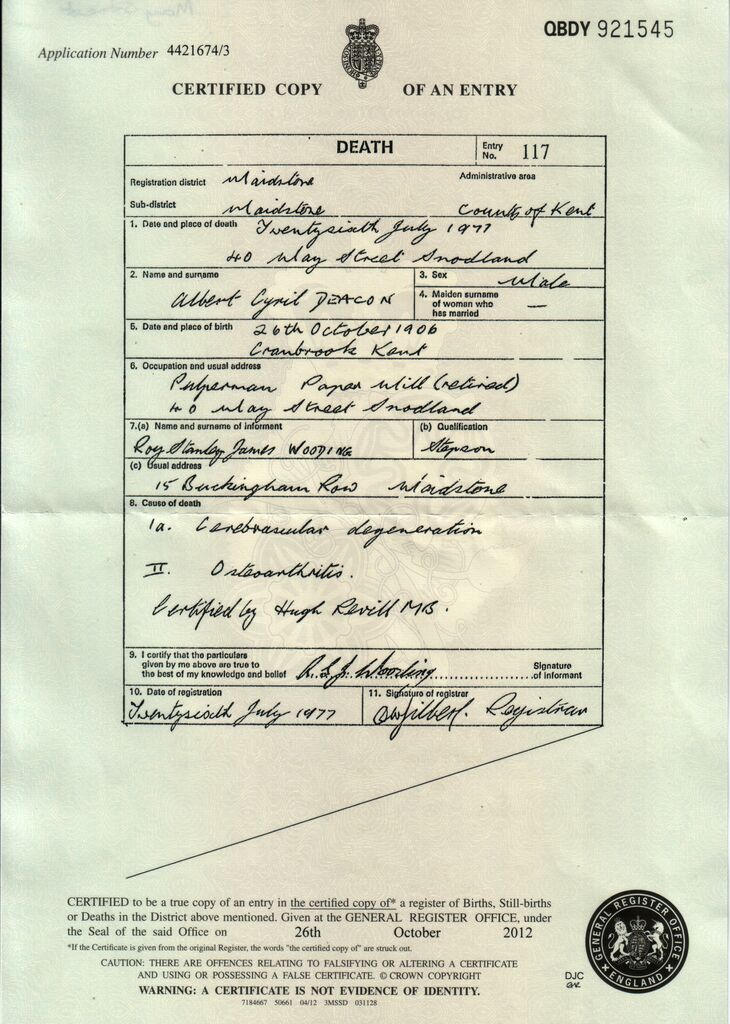 QBDY 921545
Application Number 4421674/3
CERTIFIED COPY OF AN ENTRY
DEATH Entry No. 117
Registration district Maidstone Administrative area
Sub-district Maidstone County of Kent
1. Date and place of death Twentysixth July 1977
40 May Street Snodland
2. Name and surname Albert Cyril DEACON
3. Sex Male
4. Maiden surname of woman who has married —
5. Date and place of birth 26th October 1906
Cranbrook Kent
6. Occupation and usual address
Pulperman Paper Mill (retired)
40 May Street Snodland
7.(a) Name and surname of informant
Roy Stanley James WOODING
(b) Qualification
Stepson
(c) Usual address
15 Buckingham Row Maidstone
8. Cause of death
Ia. Cerebrovascular degeneration
II. Osteoarthritis.
Certified by Hugh Revill MB.
9. I certify that the particulars
given by me above are true to
the best of my knowledge and belief R.S.J. Wooding Signature of informant
10. Date of registration
Twentysixth July 1977
11. Signature of registrar
Gilbert. Registrar
CERTIFIED to be a true copy of an entry in the certified copy of* a register of Births, Still-births
or Deaths in the District above mentioned. Given at the GENERAL REGISTER OFFICE, under
the Seal of the said Office on 26th October 2012
*If the Certificate is given from the original Register, the words "the certified copy of" are struck out.
CAUTION: THERE ARE OFFENCES RELATING TO FALSIFYING OR ALTERING A CERTIFICATE
AND USING OR POSSESSING A FALSE CERTIFICATE. © CROWN COPYRIGHT
WARNING: A CERTIFICATE IS NOT EVIDENCE OF IDENTITY.
7184667 50661 04/12 3MSSD 031128
DJC
GENERAL REGISTER OFFICE
ENGLAND